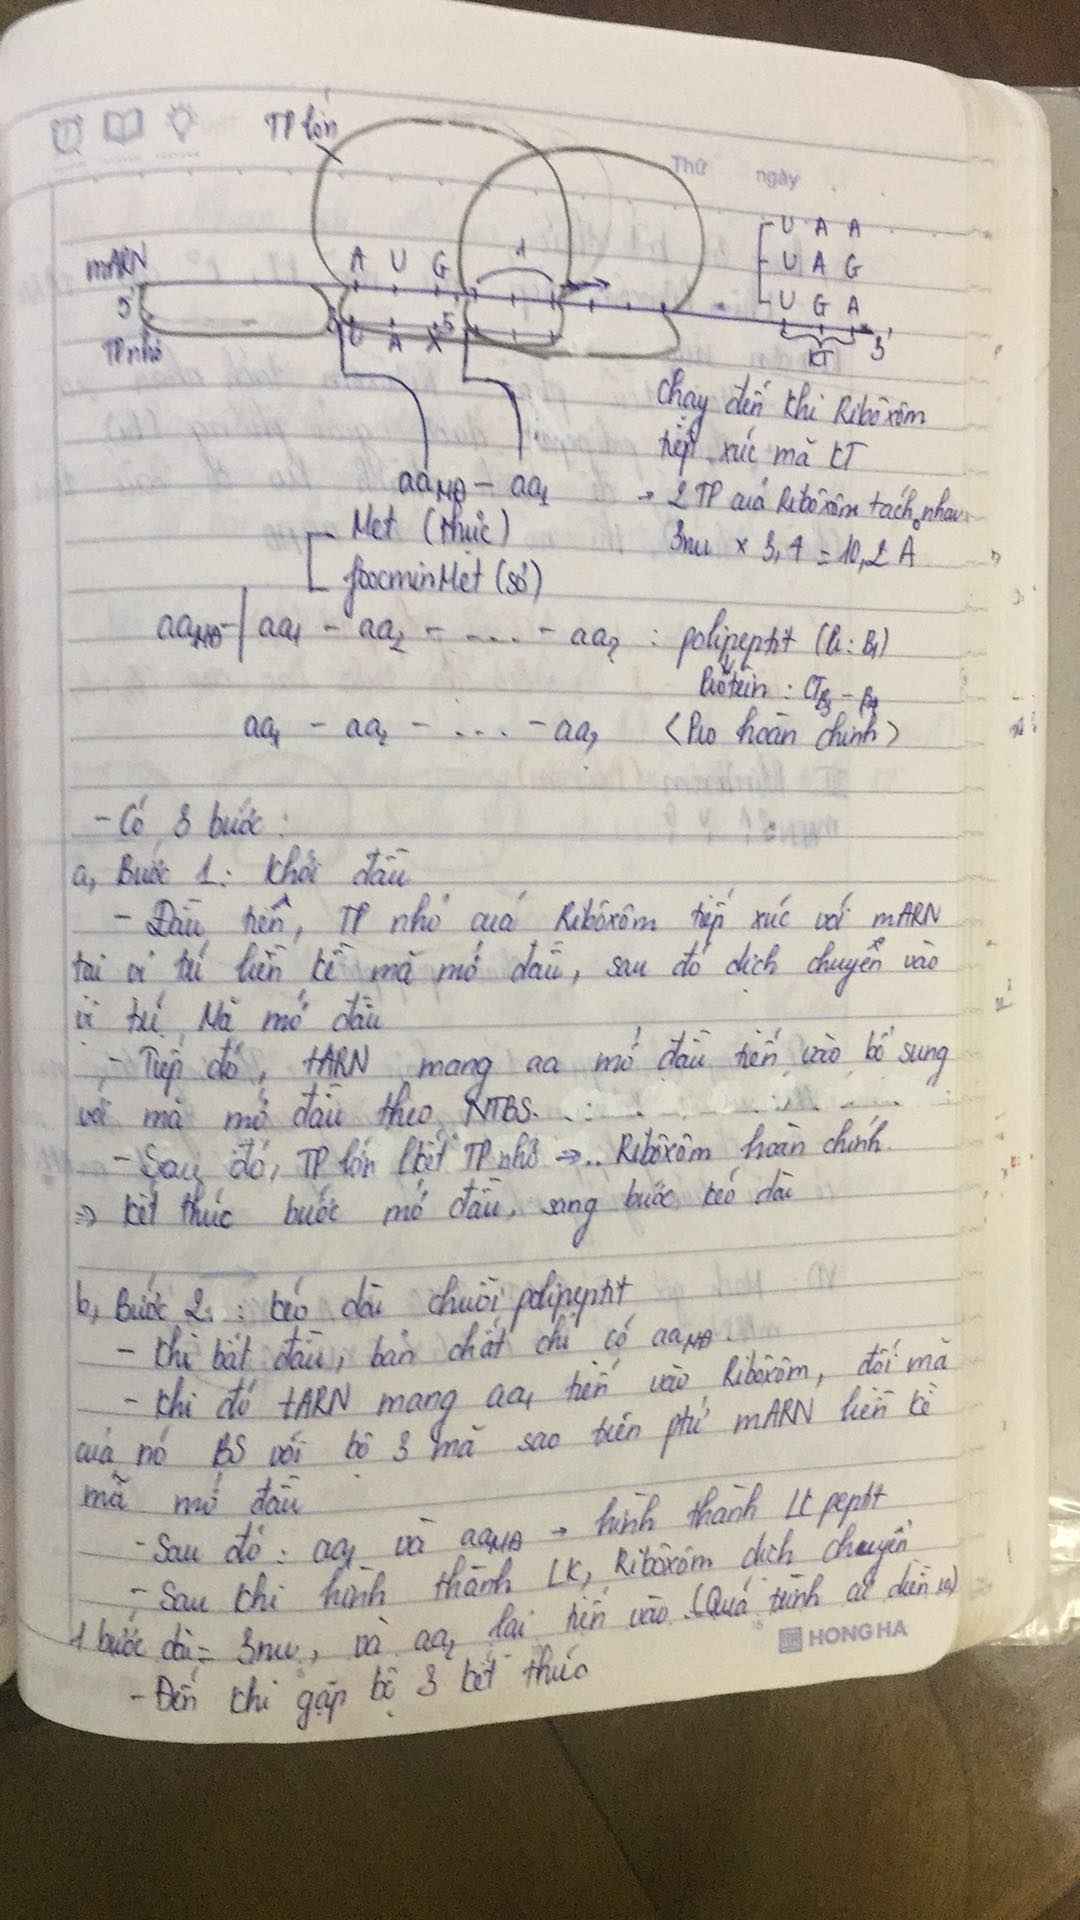 TP lớn
Thứ ngày
mARN
A U G
1
U A A
U A G
U G A
5'
3'
KT
TP nhỏ
U A X 5
Chạy đến khi Ribôxôm
tiếp xúc mã KT
→ 2 TP của Ribôxôm tách nhau
aaMĐ - aa1
Met (thực)
foocmin Met (sơ)
3nu × 3,4 = 10,2 Å
aaMĐ - aa1 - aa2 - .... - aa2 : polipeptit (B1)
Protein : CTB3 - B4
aa1 - aa2 - .... - aa2 (Pro hoàn chỉnh)
- Có 3 bước:
a, Bước 1: Khởi đầu
- Đầu tiên, TP nhỏ của Ribôxôm tiếp xúc với mARN
tại vị trí liền kề mã mở đầu, sau đó dịch chuyển vào
vị trí Mã mở đầu
- Tiếp đó, tARN mang aa mở đầu tiến vào bổ sung
với mã mở đầu theo NTBS.
- Sau đó, TP lớn lket TP nhỏ → .. Ribôxôm hoàn chỉnh.
⇒ kết thúc bước mở đầu, sang bước kéo dài
b, Bước 2: : kéo dài chuỗi polipeptit
- Khi bắt đầu, bản chất chỉ có aaMĐ.
- Khi đó tARN mang aa1 tiến vào Ribôxôm, đối mã
của nó BS với bộ 3 mã sao trên ptử mARN liền kề
mã mở đầu
- Sau đó : aa1 và aaMĐ → hình thành LK peptit
- Sau khi hình thành LK, Ribôxôm dịch chuyển
1 bước dài = 3nu, và aa2 lại tiến vào. (Quá trình cứ diễn ra)
HONG HA
- Đến khi gặp bộ 3 kết thúc